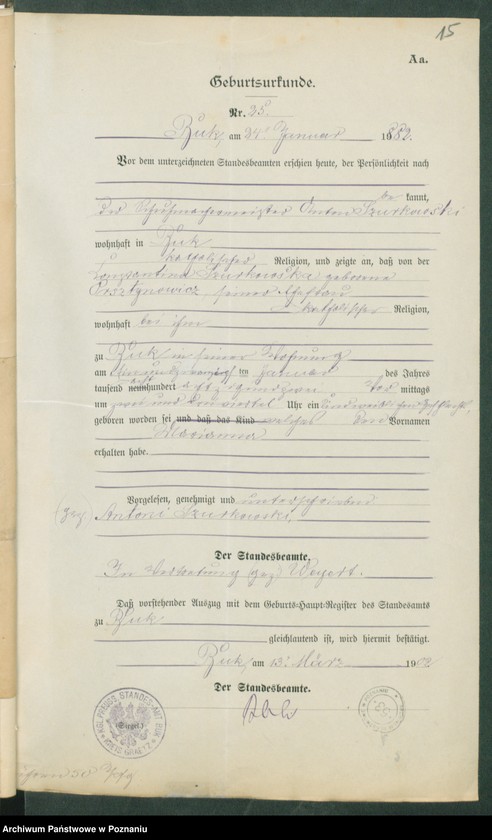 15
Aa.
Geburtsurkunde.
Nr. 35.
Buk, am 24 Januar 1882.
Vor dem unterzeichneten Standesbeamten erschien heute, der Persönlichkeit nach
be kannt,
der Schuhmachermeister Anton Szurkowski
wohnhaft in Buk
katholischer Religion, und zeigte an, daß von der
Konstantina Szurkowska geborene
seiner Ehefrau
katholischer Religion,
wohnhaft bei ihm
zu Buk in seiner Wohnung
am ten Januar des Jahres
tausend neunhundert acht mittags
um zwei und drei viertel Uhr ein Kind weiblichen Geschlechts,
geboren worden sei und daß das Kind welches den Vornamen
Marianna
erhalten habe.
Vorgelesen, genehmigt und unterschrieben
(gez) Antoni Szurkowski,
Der Standesbeamte,
In Vertretung (gez) Weyert.
Daß vorstehender Auszug mit dem Geburts-Haupt-Register des Standesamts
zu Buk
gleichlautend ist, wird hiermit bestätigt.
Buk, am 13. März 1902
Der Standesbeamte.
(Siegel.)
KGL. PREUSS. STANDES-AMT BUK
KREIS GRAETZ
Archiwum Państwowe w Poznaniu